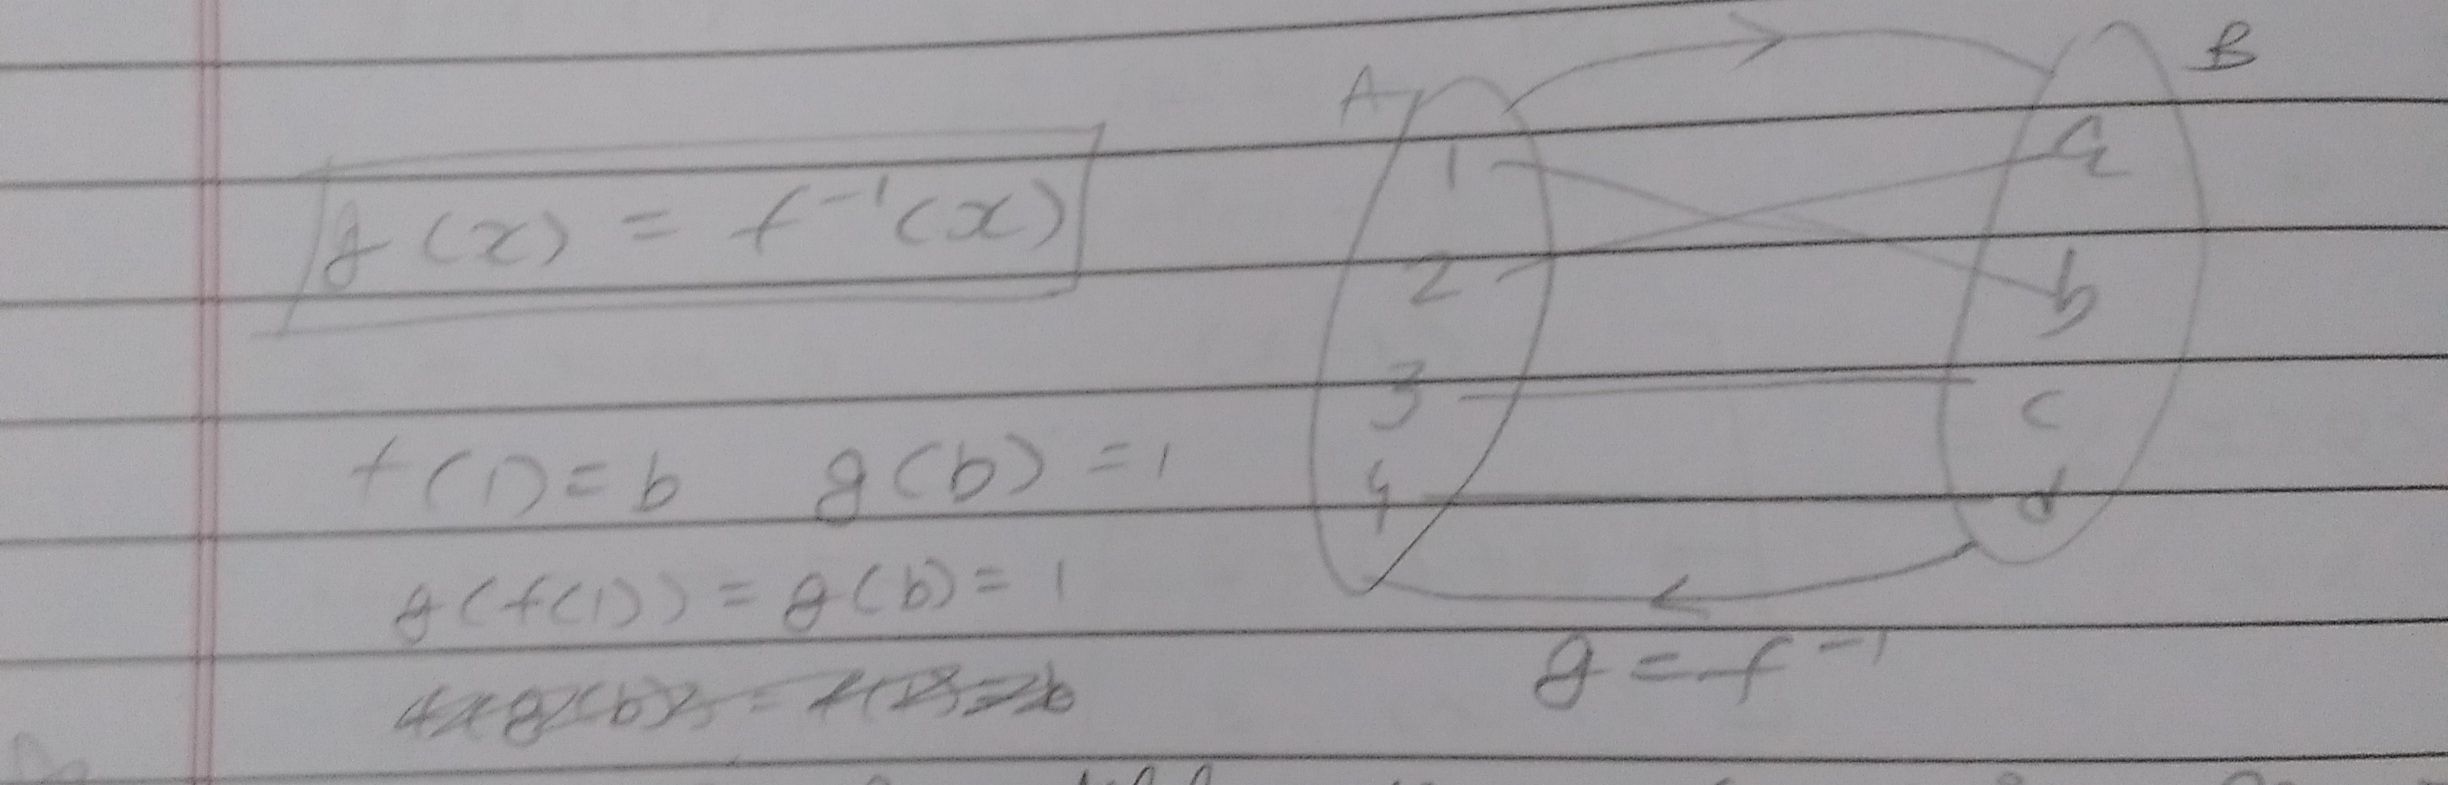 A B
1 a
g(x) = f⁻¹(x)
2 b
3 c
f(1) = b g(b) = 1
4 d
g(f(1)) = g(b) = 1
g = f⁻¹